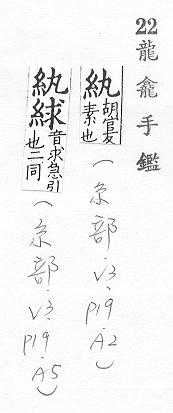 22 龍龕手鑑
紈 胡官反素也 (糸部.V3.P19.A2)
紈絿 音求急引也二同 (糸部.V3.P19.A5)